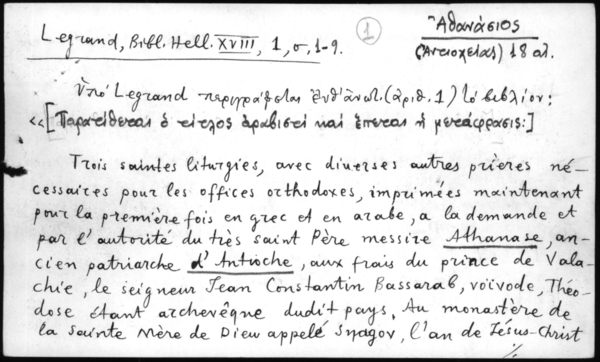 Ἀθανάσιος
(Ἀντιοχείας) 18 αἰ.
Legrand, Bibl. Hell. XVIII, 1, σ. 1-9.
1
Ὑπὸ Legrand περιγράφεται ἐνθ' ἀνωτ. (ἀριθ. 1) τὸ βιβλίον:
«[Παρατίθεται ὁ τίτλος ἀραβιστὶ καὶ ἕπεται ἡ μετάφρασις:]
Trois saintes liturgies, avec diverses autres prières né-
cessaires pour les offices orthodoxes, imprimées maintenant
pour la première fois en grec et en arabe, a la demande et
par l'autorité du très saint Père messire Athanase, an-
cien patriarche d'Antioche, aux frais du prince de Vala-
chie, le seigneur Jean Constantin Bassarab, voïvode, Théo-
dose étant archevêque dudit pays. Au monastère de
la sainte Mère de Dieu appelé Snagov, l'an de Jésus-Christ